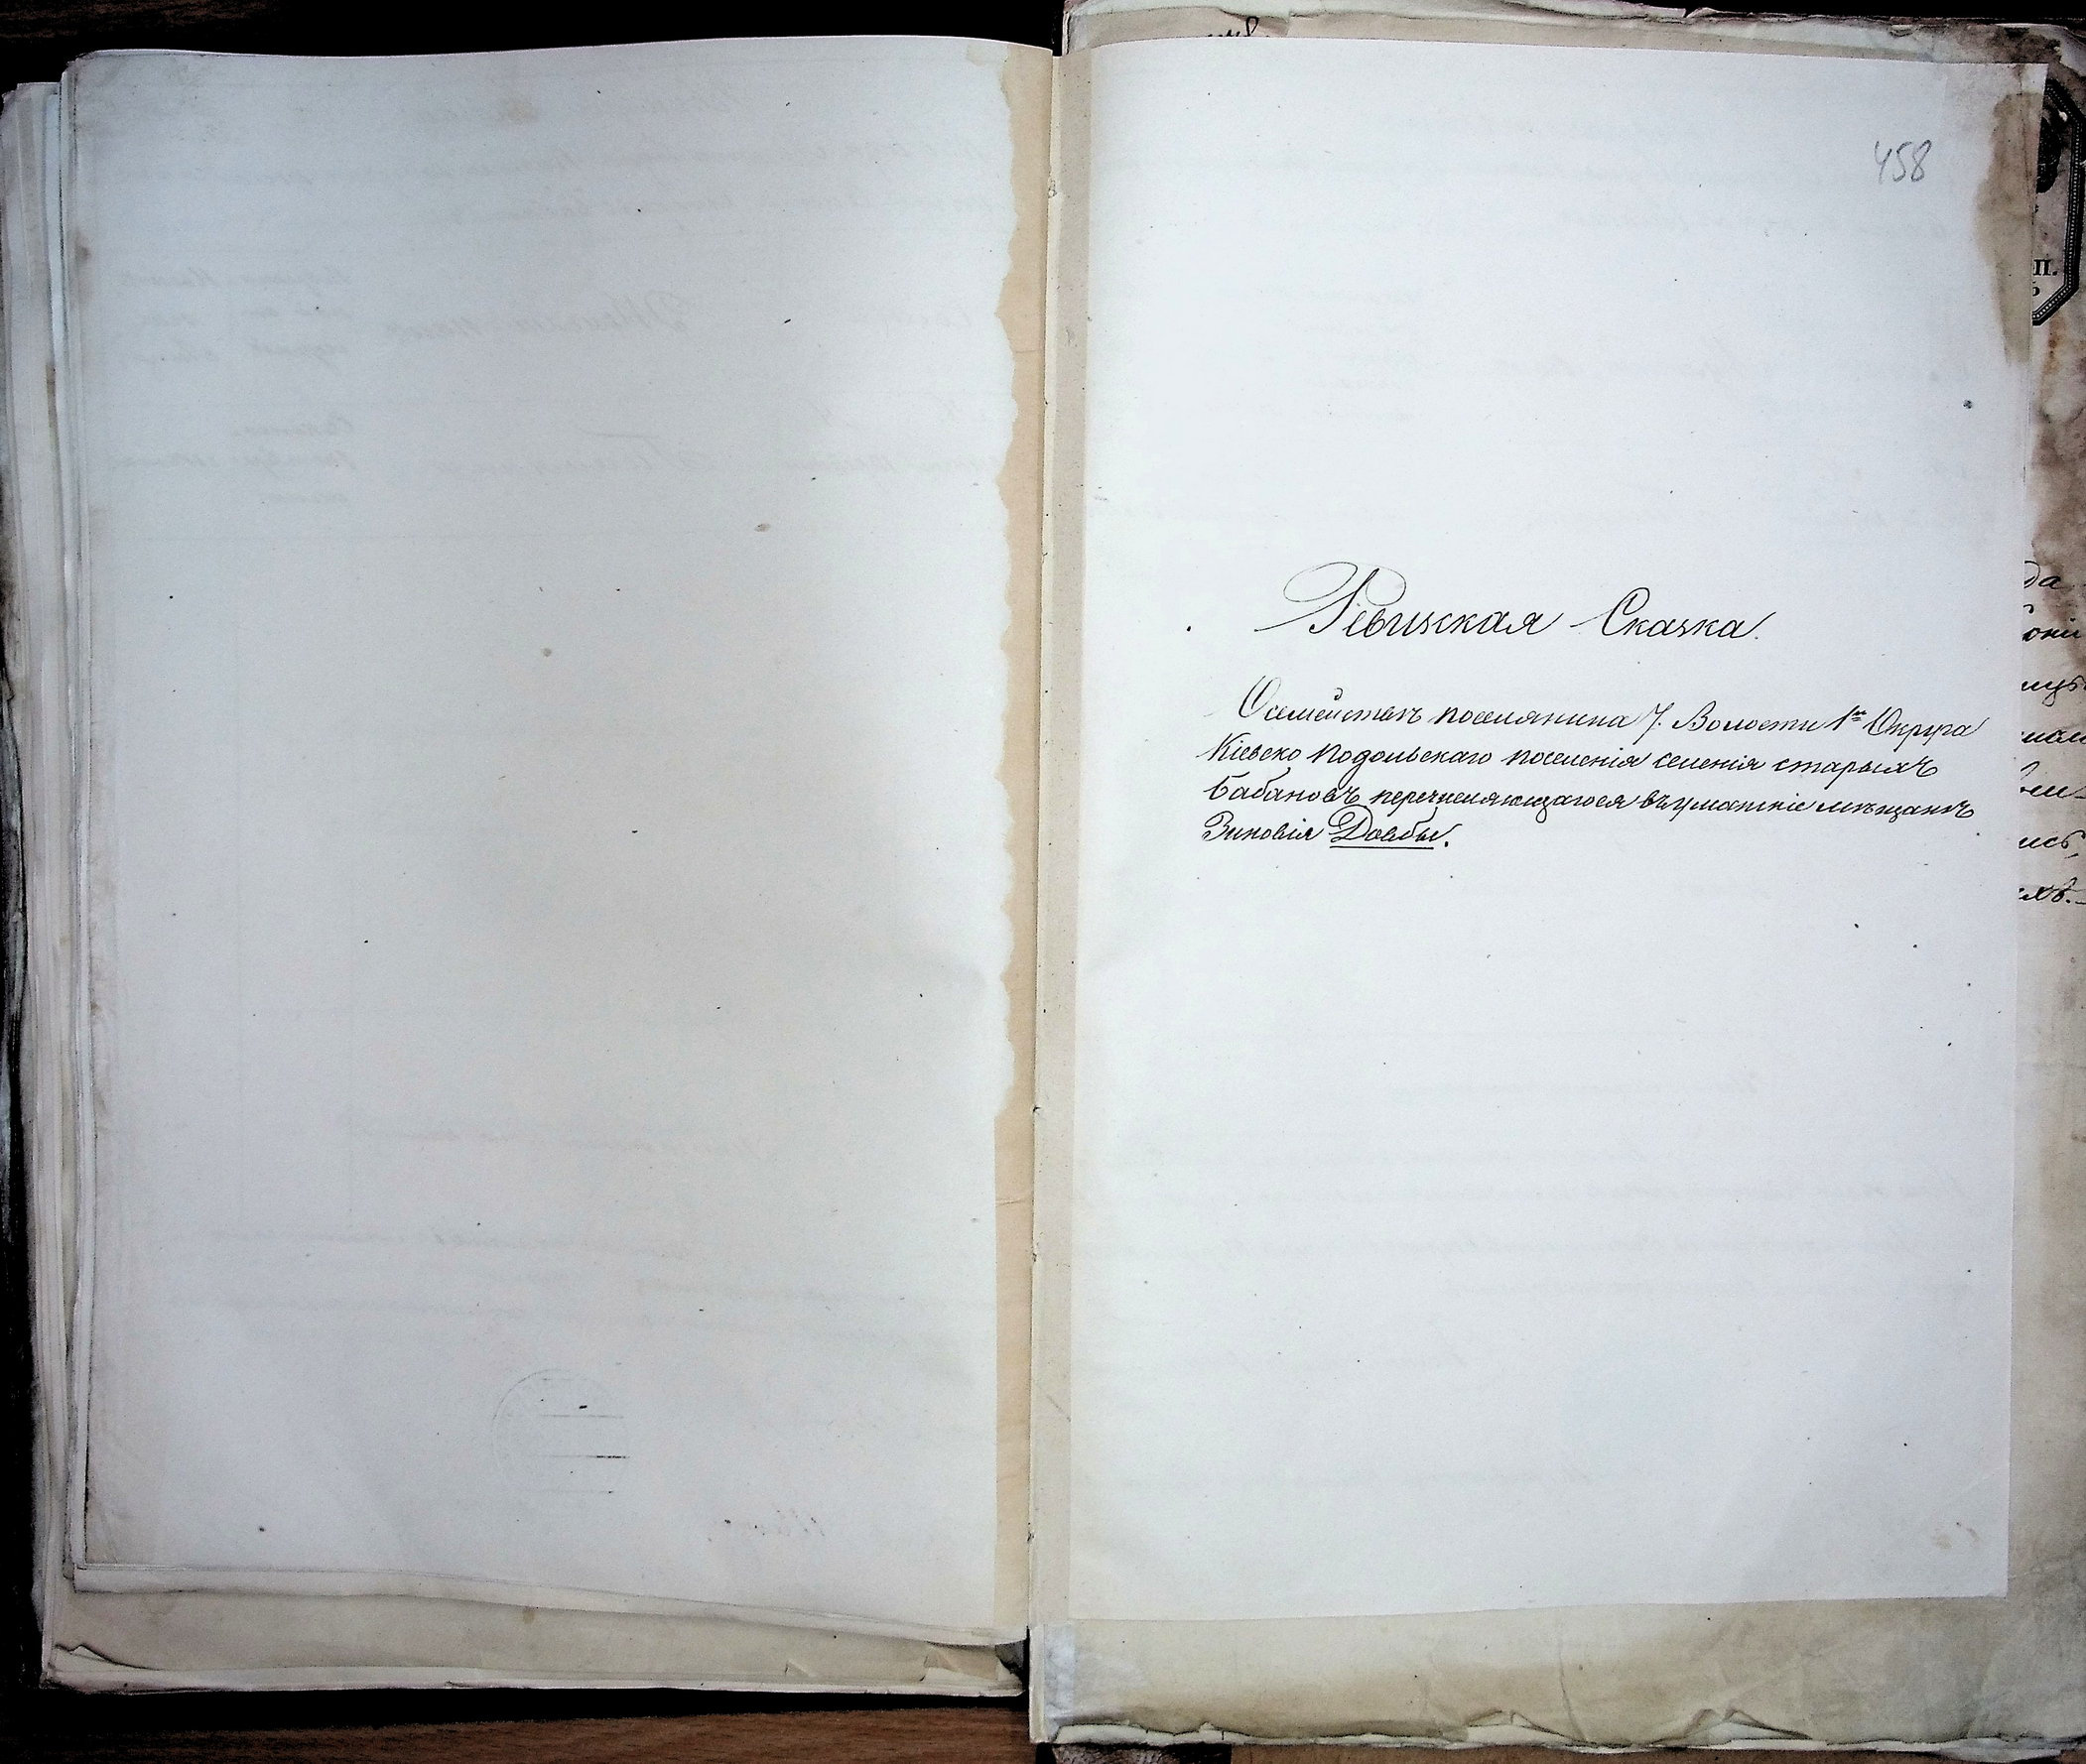 458
Ревизкая Сказка.
О семействѣ поселянина 7. Волости 1го Округа
Кіевско Подольскаго поселенія селенія старыхъ
Бабановъ перечисляющагося въ уманскіе мѣщанѣ
Зиновія Довбы.
П.
да